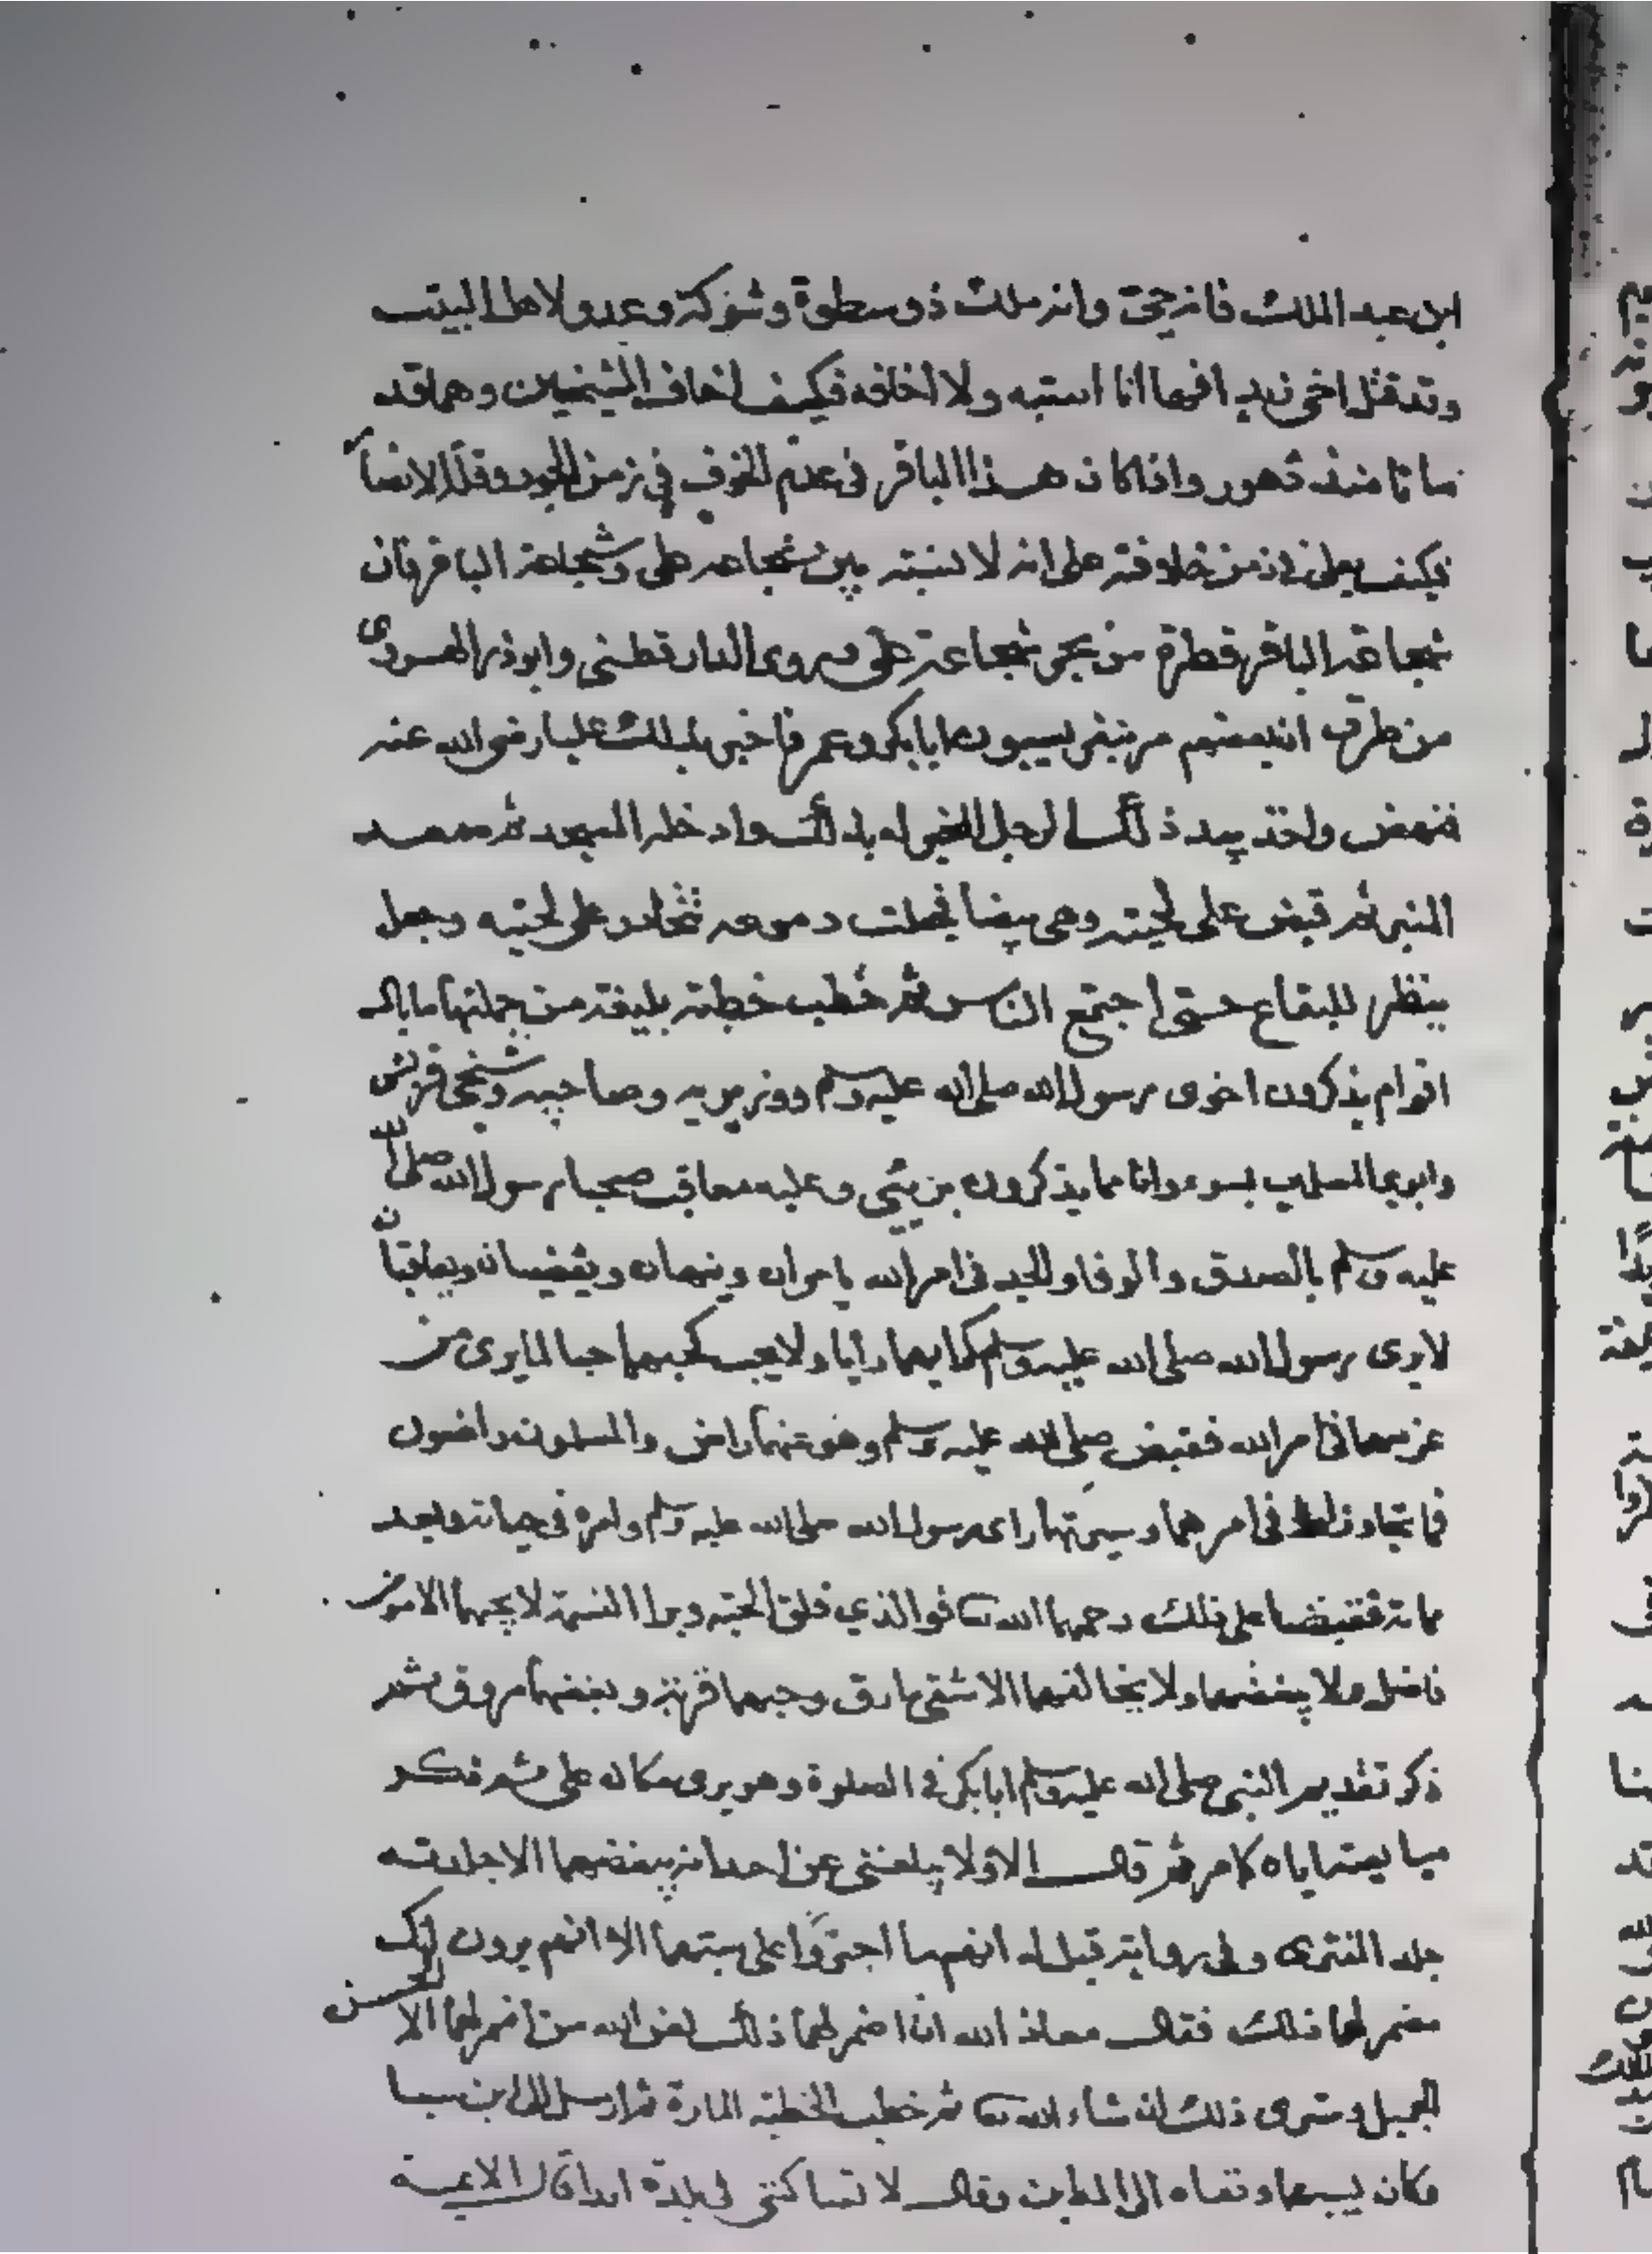 ابن عبد الملك فانه حي وانه ملك ذو سطوة وشوكة وعدو لاهل البيت
وقد قتل اخي زيد افهما انا اسبه ولا اخافه فكيف اخاف الشيخين وهما قد
ماتا منذ دهور واذا كان هذا الباقر في عدم الخوف في زمن الجور وقلة الانصا
فكيف بعلي زمن خلافته على انه لا نسبة بين شجاعة علي وشجاعة الباقر فان
شجاعة الباقر قطرة من بحر شجاعة علي وروى الدارقطني وابوذر الهروي
من طرق ان بعضهم مر بنفر يسبون ابابكر وعمر فاخبر بذلك عليا رضي الله عنه
فنهض واخذ بيد ذلك الرجل المخبر له بذلك وادخله المسجد ثم صعد
المنبر ثم قبض على لحيته وهي بيضا فجعلت دموعه تتحادر على لحيته وجعل
ينظر للبقاع حتى اجتمع الناس ثم خطب خطبة بليغة من جملتها ما بال
اقوام يذكرون اخوي رسول الله صلى الله عليه وسلم ووزيريه وصاحبيه وشيخي قريش
وابوي المسلمين بسوء وانا مما يذكرون بريئي وعليه معاقب صحبا رسول الله صلى الله
عليه وسلم بالصدق والوفا والجد في امر الله يامران وينهان ويقضيان ويعاقبان
لا يرى رسول الله صلى الله عليه وسلم كرايهما رايا ولا يحب كحبهما حبا لما يرى من
عزمهما في امر الله فقبض صلى الله عليه وسلم وهو عنهما راض والمسلمون راضون
فما تجاوزا في امرهما وسيرتهما راي رسول الله صلى الله عليه وسلم وامره في حياته وبعد
مماته فقبضا على ذلك رحمهما الله فوالذي فلق الحبة وبرا النسمة لا يحبهما الا مومن
فاضل ولا يبغضهما ولا يخالفهما الا شقي مارق وحبهما قربة وبغضهما مروق ثم
ذكر تقديم النبي صلى الله عليه وسلم ابابكر في الصلوة وهو يرى مكانه علي ثم ذكر
مبايعته اياه كامر ثم قال الا ولا يبلغني عن احد انه يبغضهما الا جلدته
جلد المفتري وفي رواية قيل له انهم ما اجتروا على سبهما الا انهم يرون انك
مضمر لهما ذلك فقال معاذ الله ان اضمر لهما ذلك لعن الله من اضمر لهما الا الحسن
الجميل وسترى ذلك ان شاء الله ثم خطب الخطبة المارة ثم ارسل الى ابن سبا
وكان يسبهما ونفاه الى المداين وقال لا تساكني في بلدة ابدا قال الايمة